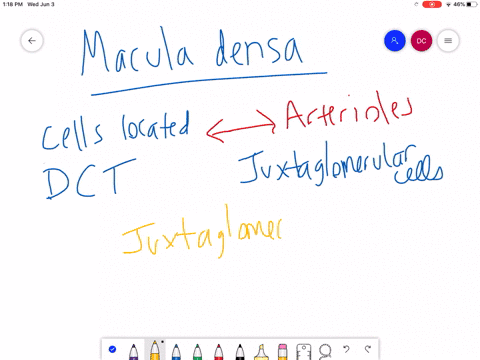 1:18 PM Wed Jun 3
46%
DC
Macula densa
Cells located ↔ Arterioles
DCT
Juxtaglomerular cells
Juxtaglomer